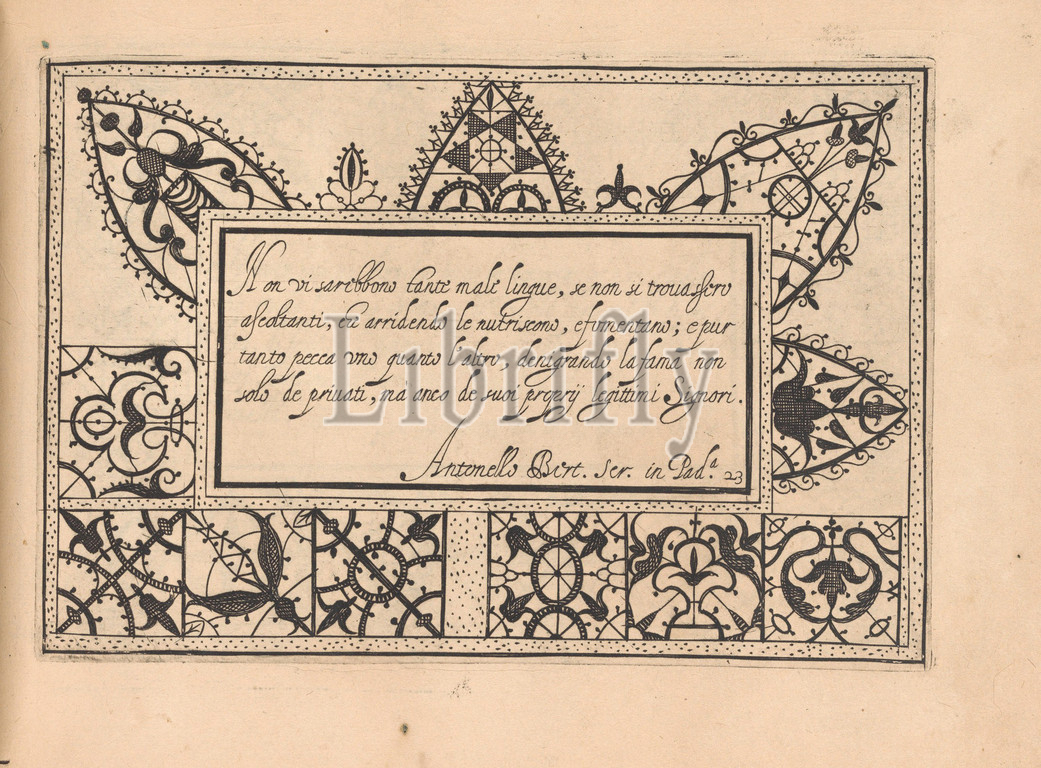 Non vi saribbono tante male lingue, se non si trouassero
ascoltanti, che arridendo le nutriscono, e fomentano; e pur
tanto pecca vno quanto l'altro, denigrando la fama non
solo de priuati, ma anco de suoi proprij legittimi Signori.
Librifly
Antonello Bert. ser. in Pad.ª 23